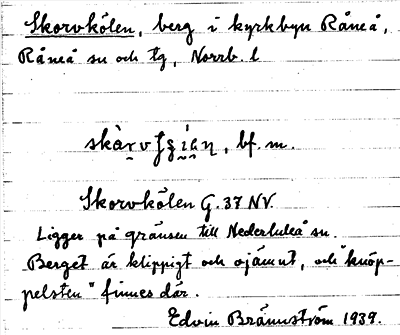 Skorvkölen, berg i kyrkbyn Råneå,
Råneå sn och tg, Norrb. l
bf. m.
Skorvkölen G. 37 NV.
Ligger på gränsen till Nederluleå sn.
Berget är klippigt och ojämnt, och "knöp-
pelsten" finnes där.
Edvin Brännström 1939.